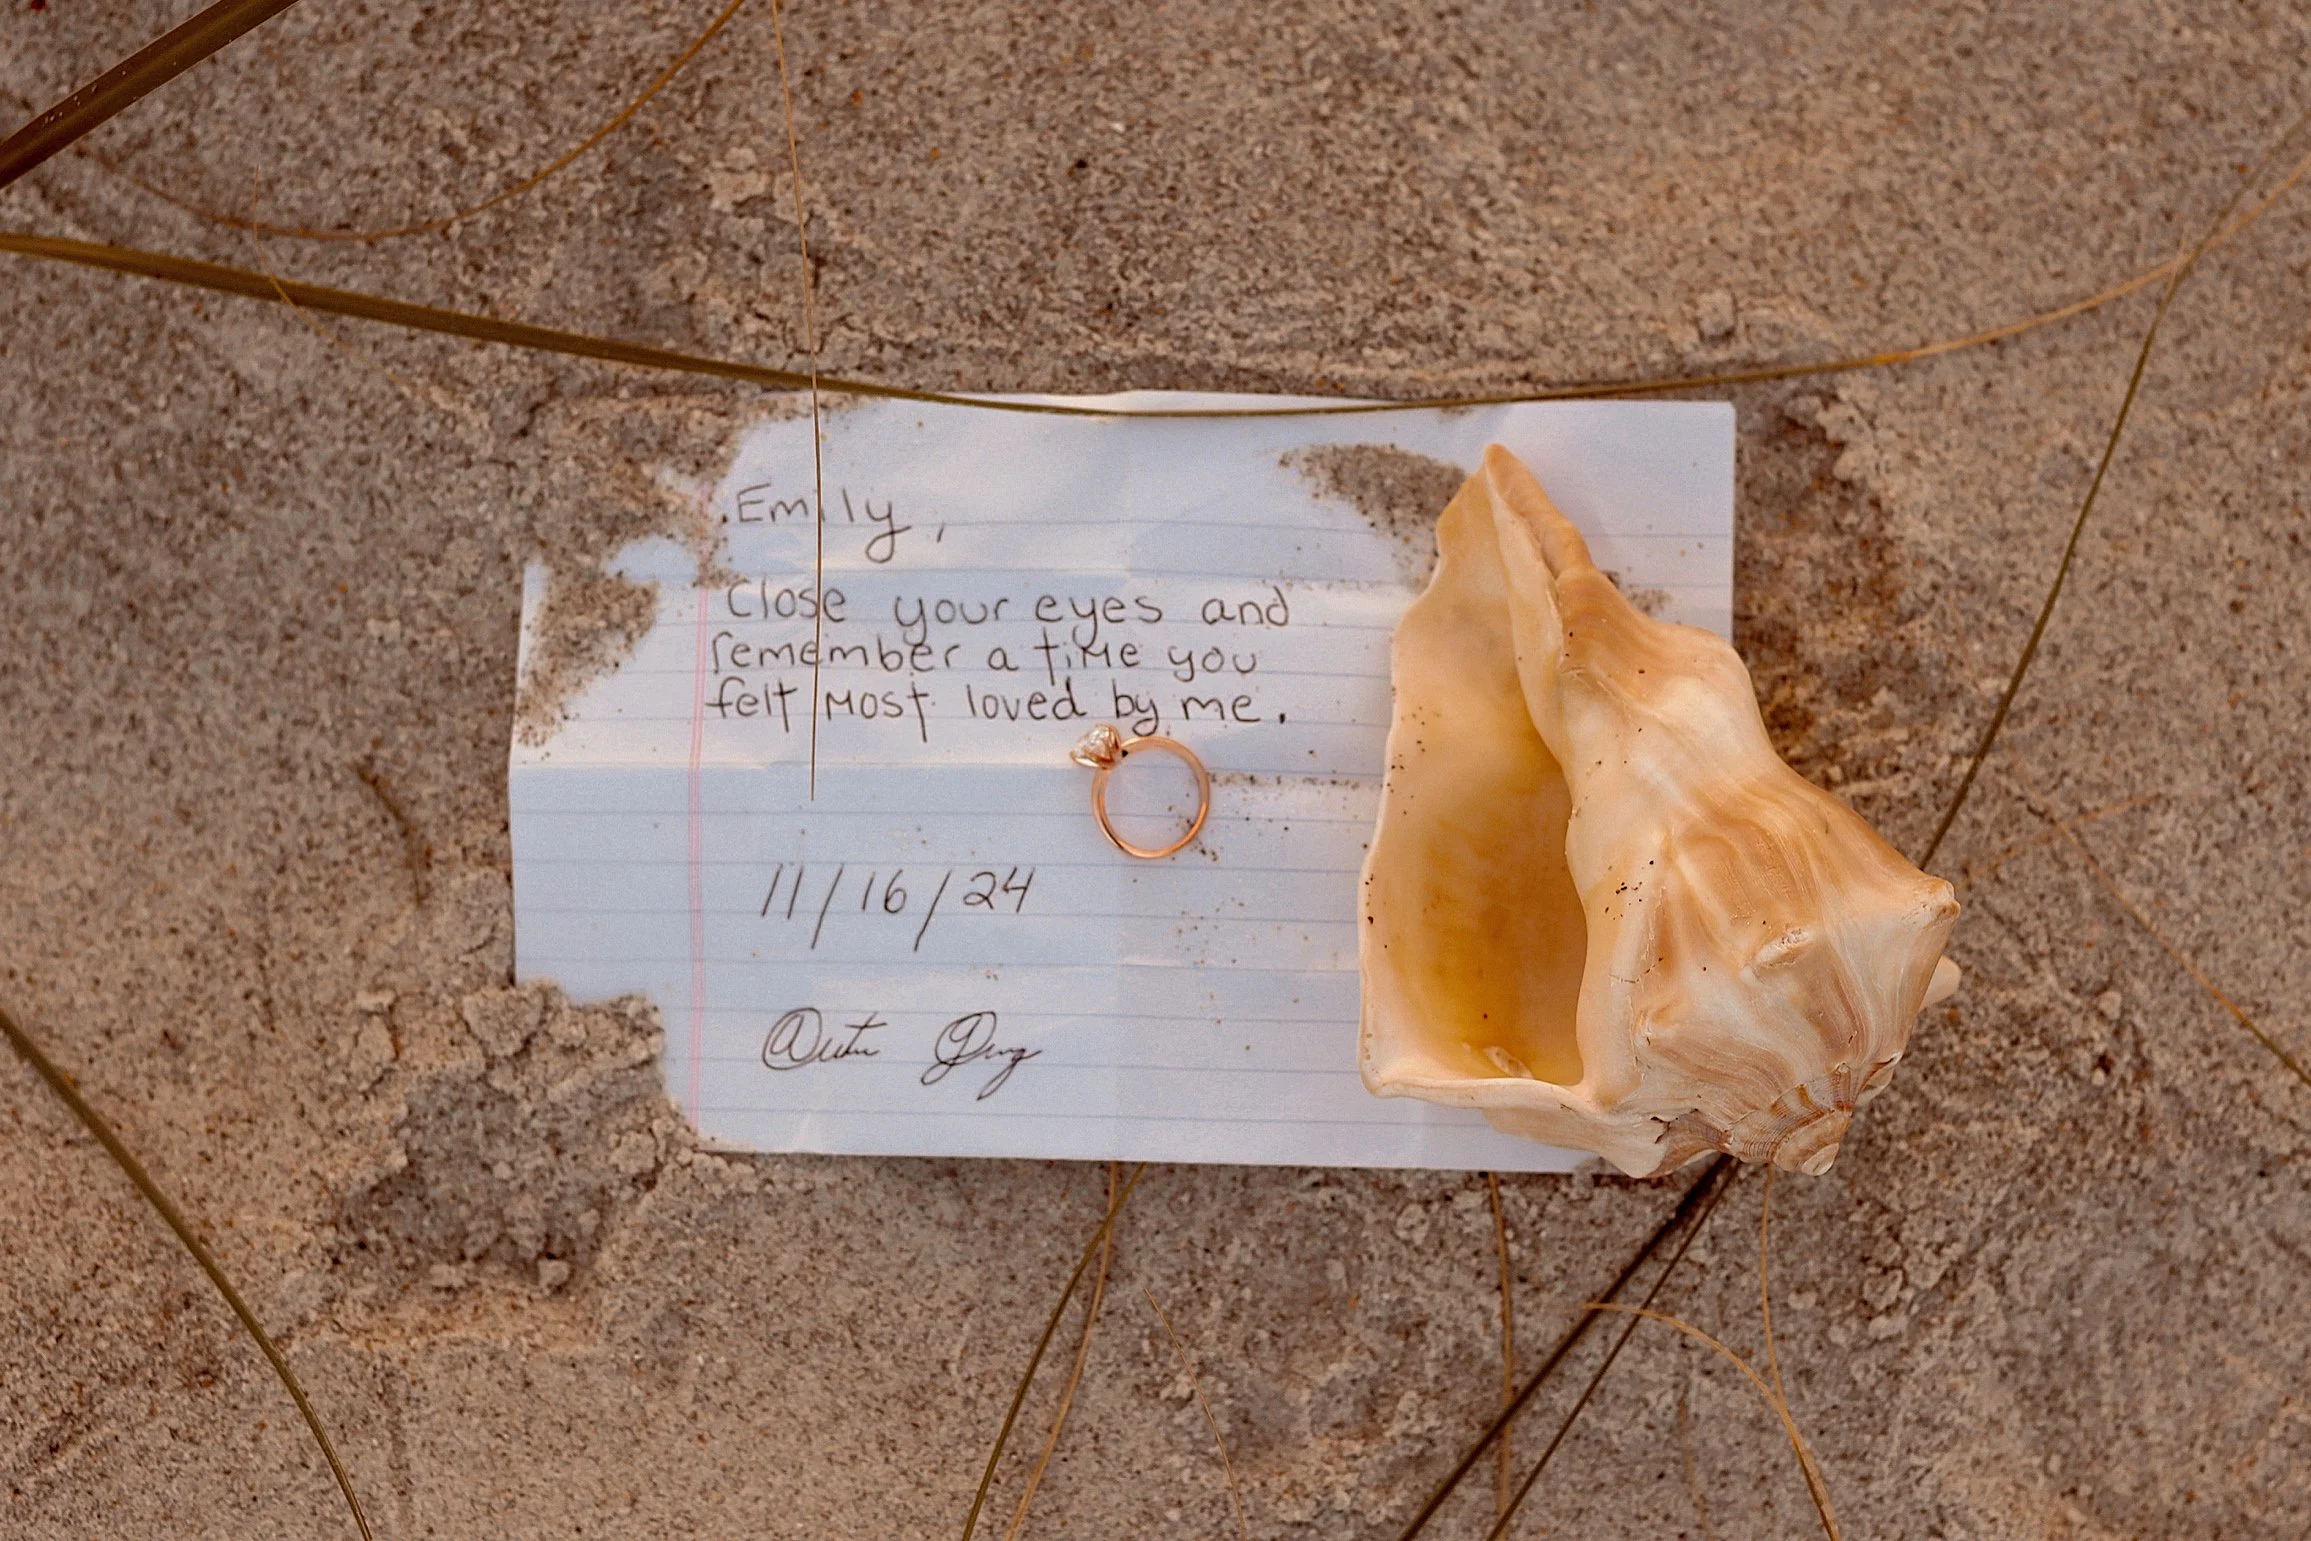 Emily,
Close your eyes and
remember a time you
felt most loved by me.
11/16/24